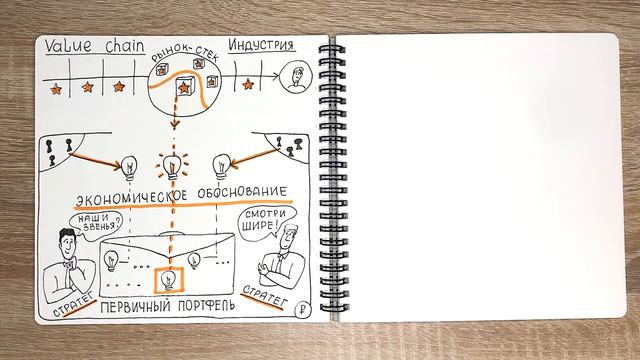 Value chain
РЫНОК-СТЕК
ИНДУСТРИЯ
ЭКОНОМИЧЕСКОЕ ОБОСНОВАНИЕ
НАШИ
ЗВЕНЬЯ?
СМОТРИ
ШИРЕ!
СТРАТЕГ
ПЕРВИЧНЫЙ ПОРТФЕЛЬ
СТРАТЕГ
₽